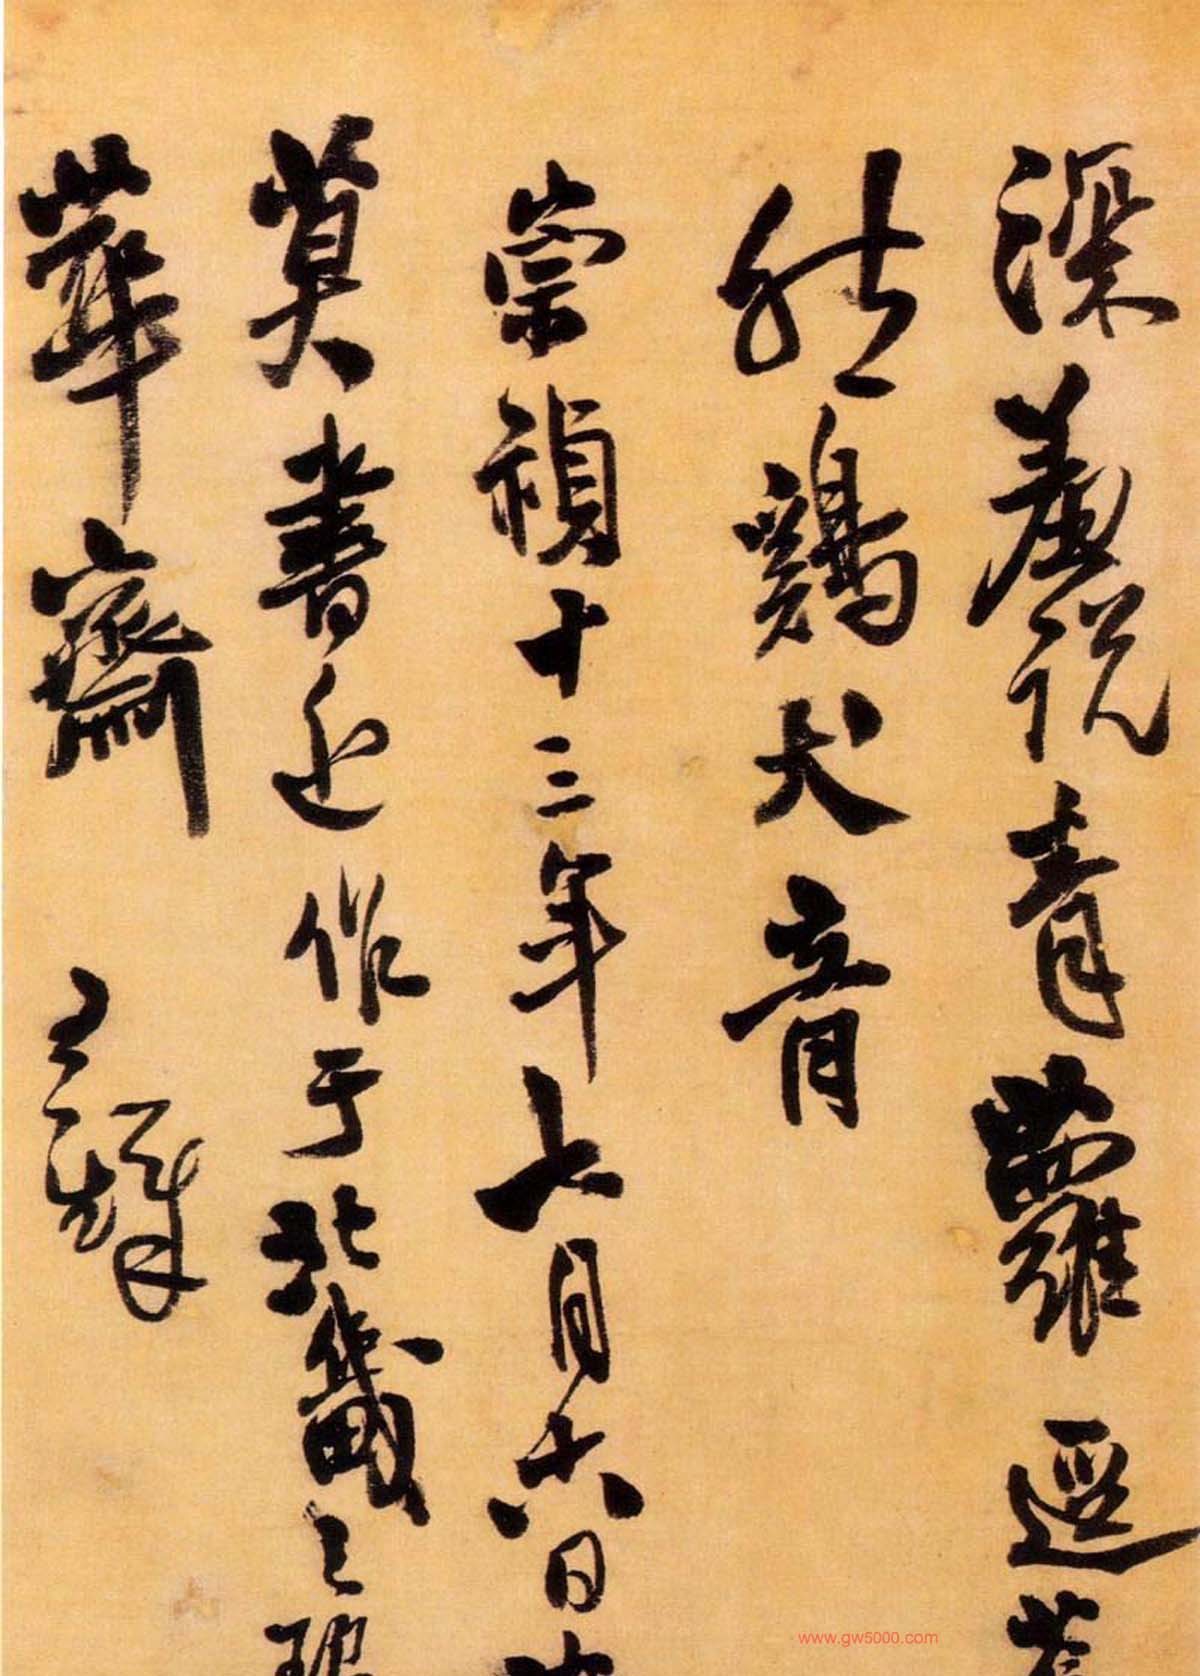 深羞說青蘿遥
然鷄犬音
崇禎十三年七月六日
莫書近作于北畿之
華齋 王鐸
www.gw5000.com